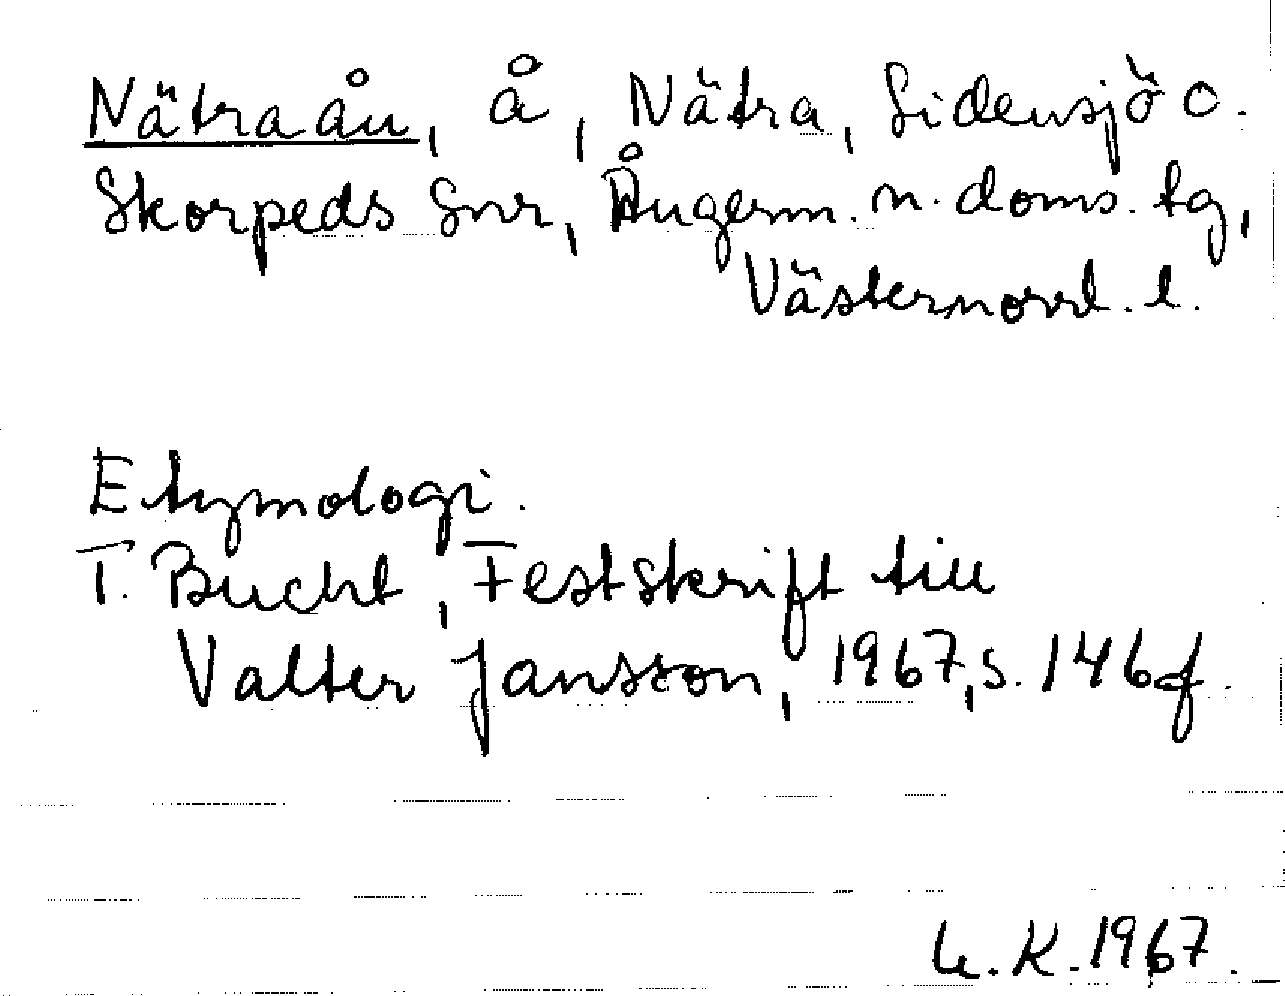 Nätraån, å, Nätra, Sidensjö o.
Skorpeds snr, Ångerm. n. doms. tg,
Västernorrl. l.
Etymologi.
T. Bucht, Festskrift till
Valter Jansson, 1967, s. 146 f.
K. 1967.